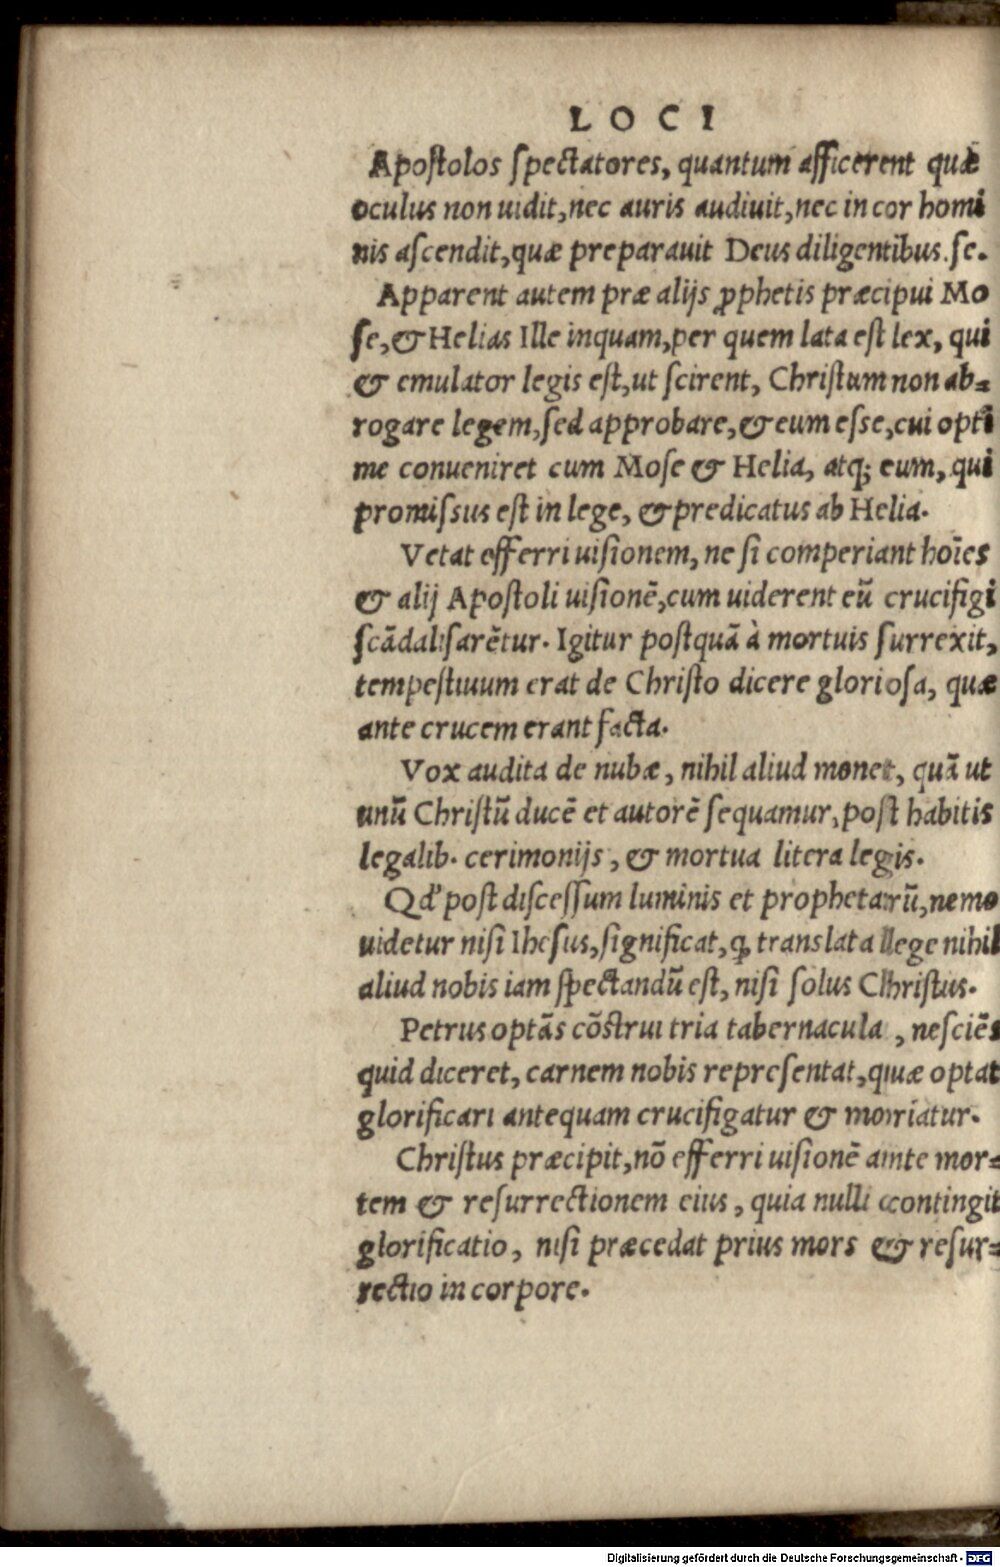 LOCI
Apostolos spectatores, quantum afficerent quæ
oculus non uidit, nec auris audiuit, nec in cor homi
nis ascendit, quæ preparauit Deus diligentibus se.
Apparent autem præ alijs ꝓphetis præcipui Mo
se, & Helias Ille inquam, per quem lata est lex, qui
& emulator legis est, ut scirent, Christum non ab-
rogare legem, sed approbare, & eum esse, cui opti
me conueniret cum Mose & Helia, atq; eum, qui
promissus est in lege, & predicatus ab Helia.
Vetat efferri uisionem, ne si comperiant hoīes
& alij Apostoli uisionē, cum uiderent eū crucifigi
scādalisarētur. Igitur postquā à mortuis surrexit,
tempestiuum erat de Christo dicere gloriosa, quæ
ante crucem erant facta.
Vox audita de nubæ, nihil aliud monet, quā ut
unū Christū ducē et autorē sequamur, post habitis
legalib. cerimonijs, & mortua litera legis.
Qd' post discessum luminis et prophetarū, nemo
uidetur nisi Ihesus, significat, ꝙ translata lege nihil
aliud nobis iam spectandū est, nisi solus Christus.
Petrus optās cōstrui tria tabernacula, nesciēs
quid diceret, carnem nobis representat, quæ optat
glorificari antequam crucifigatur & moriatur.
Christus præcipit, nō efferri uisionē ante mor-
tem & resurrectionem eius, quia nulli contingit
glorificatio, nisi præcedat prius mors & resur-
rectio in corpore.
Digitalisierung gefördert durch die Deutsche Forschungsgemeinschaft - DFG